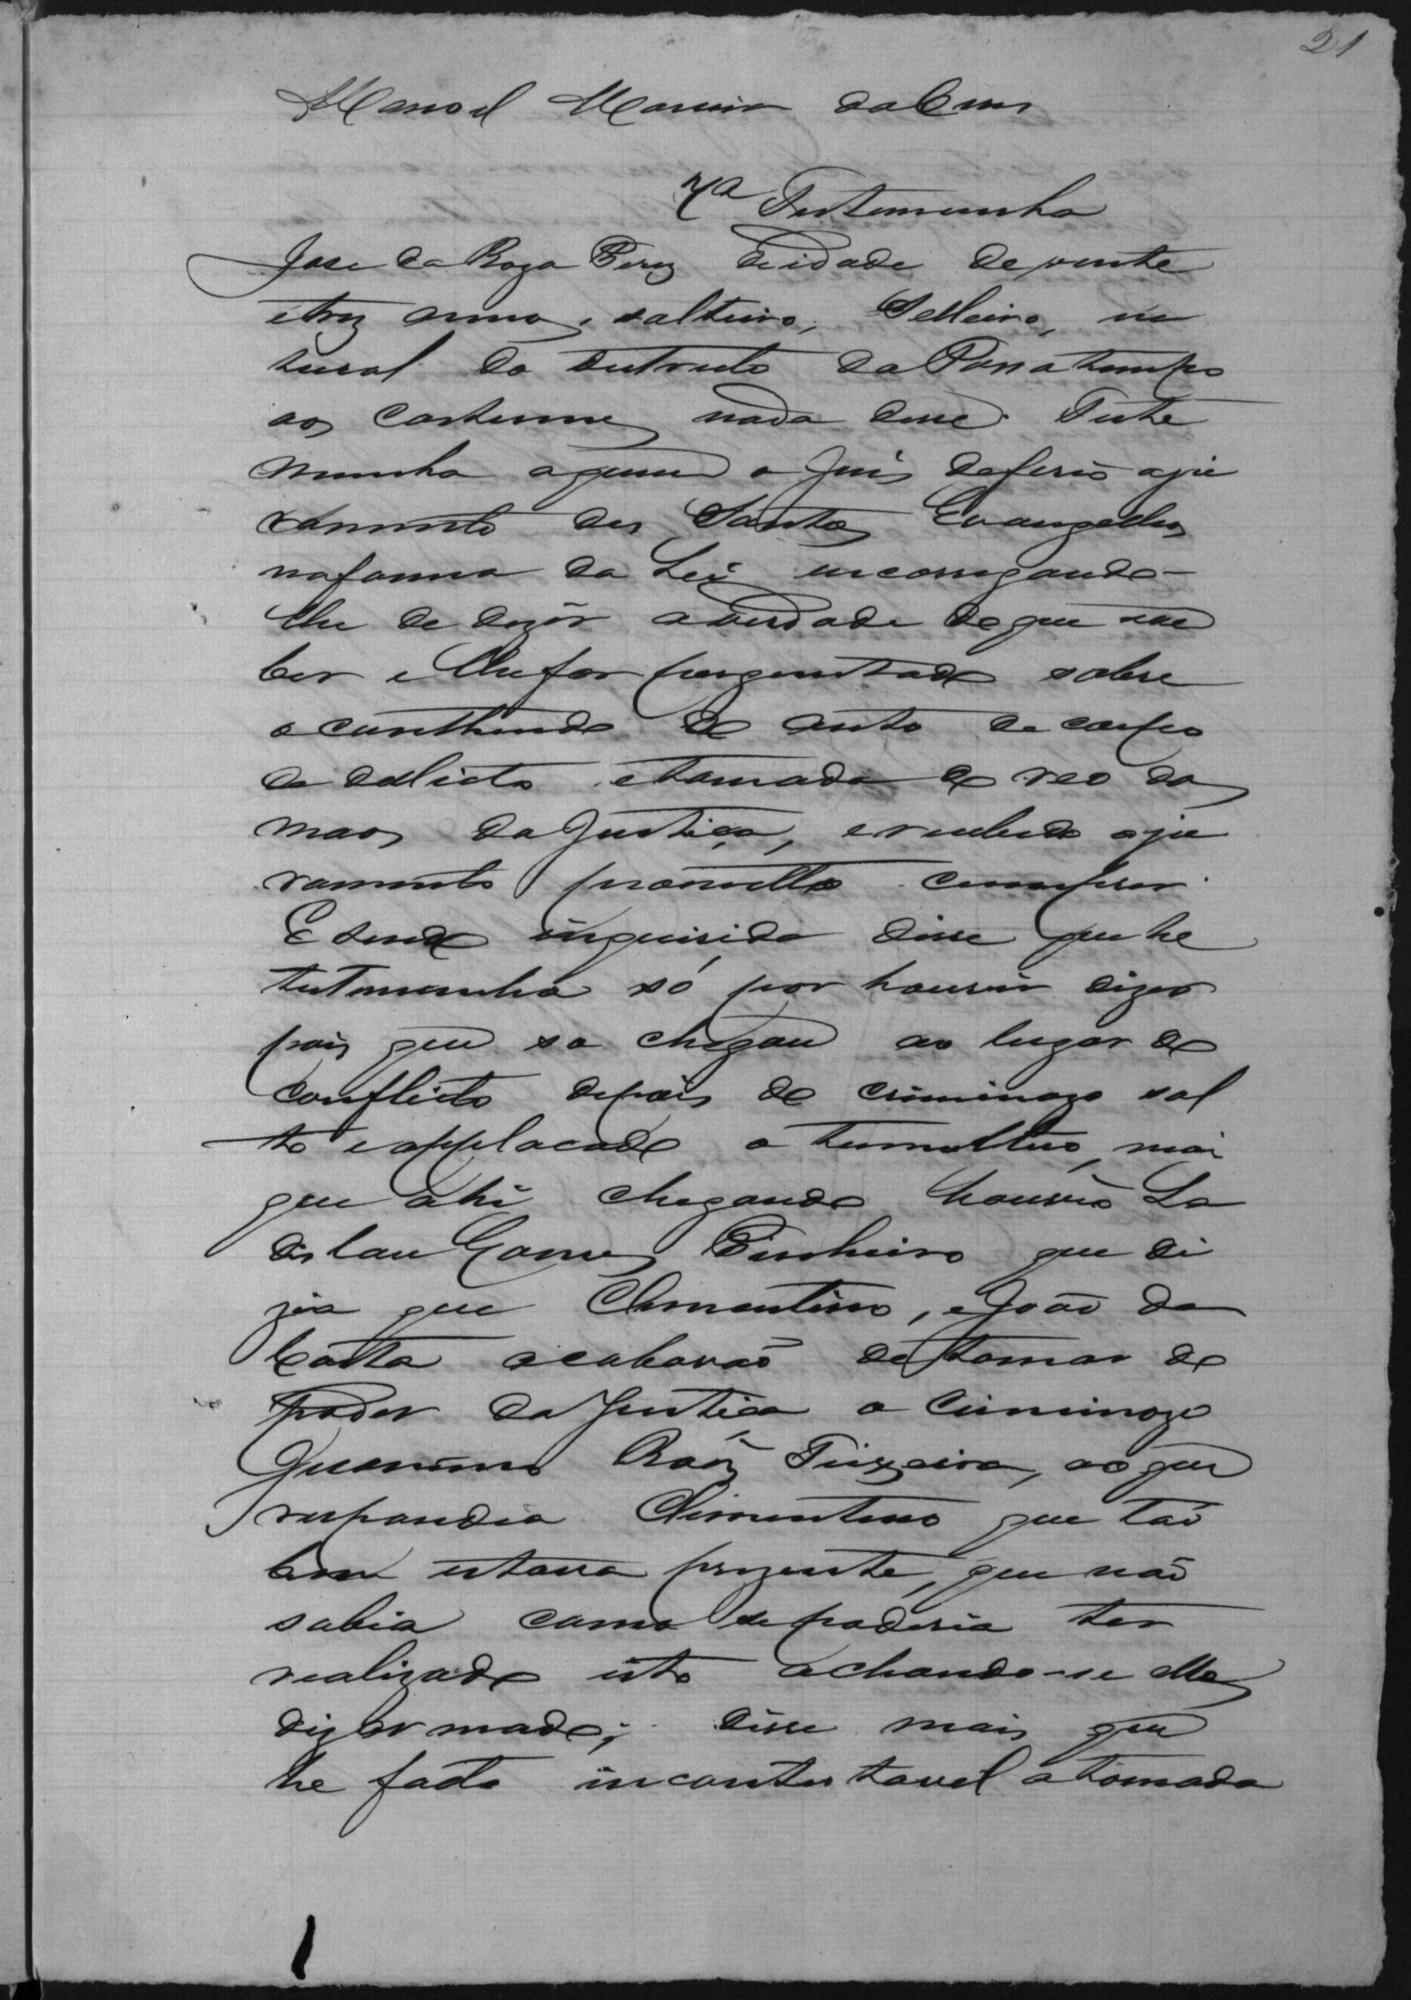 21
Manoel Moreira da Crus
7a Testemunha
Jose da Roza Perez de idade de vinte
e trez annos, salteiro, Selleiro, na
tural do destricto da Passatempo
aos costumes nada disse. Teste
munha aquem o Juis deferio aju
ramento dos Santos Evangelhos
na forma da Lei encarregando-
lhe de dizêr averdade do que sou
ber e lhe for perguntado sobre
o conthendo do auto de corpo
de delicto e tomada do reo das
maos da Justiça, e recebido oju
ramento prometteo cumprir.
E sendo inquirida disse que he
testemunha só por houvir dizer
pois que so chegou ao lugar do
conflicto depois do criminozo sol
to e applacado o tumultuo, mai
que ahi chegando houvio La
dislau Gomes Pinheiro que di
zia que Clementino, e João da
Costa acabavão de tomar do
poder da Justiça o criminozo
Jeronimo Roiz Teixeira, ao que
respondia Clementino que tão
bem estava prezente, que não
sabia como se poderia ter
realizado isto achando-se elles
dizarmado; disse mais que
he facto incontestavel a tomada